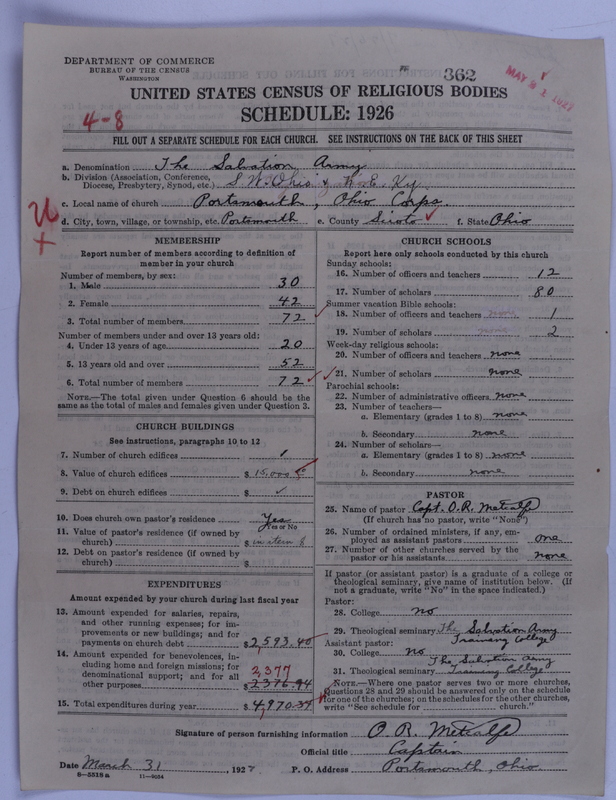 DEPARTMENT OF COMMERCE
BUREAU OF THE CENSUS
WASHINGTON
362
MAY 31 1927
UNITED STATES CENSUS OF RELIGIOUS BODIES
SCHEDULE: 1926
4-8
FILL OUT A SEPARATE SCHEDULE FOR EACH CHURCH. SEE INSTRUCTIONS ON THE BACK OF THIS SHEET
a. Denomination The Salvation Army
b. Division (Association, Conference, Diocese, Presbytery, Synod, etc.) S. W. Ohio & N. E. Ky.
c. Local name of church Portsmouth, Ohio Corps.
d. City, town, village, or township, etc. Portsmouth e. County Scioto f. State Ohio
MEMBERSHIP
Report number of members according to definition of
member in your church
Number of members, by sex:
1. Male 30
2. Female 42
3. Total number of members 72
Number of members under and over 13 years old:
4. Under 13 years of age 20
5. 13 years old and over 52
6. Total number of members 72
NOTE.—The total given under Question 6 should be the
same as the total of males and females given under Question 3.
CHURCH BUILDINGS
See instructions, paragraphs 10 to 12
7. Number of church edifices 1
8. Value of church edifices $ 15,000
9. Debt on church edifices $ ✓
10. Does church own pastor's residence Yes
Yes or No
11. Value of pastor's residence (if owned by
church) $
12. Debt on pastor's residence (if owned by
church) $
EXPENDITURES
Amount expended by your church during last fiscal year
13. Amount expended for salaries, repairs,
and other running expenses; for im-
provements or new buildings; and for
payments on church debt $ 2,593.40
14. Amount expended for benevolences, in-
cluding home and foreign missions; for
denominational support; and for all
other purposes $ 2376.94
2,377
15. Total expenditures during year $ 4,970.34
CHURCH SCHOOLS
Report here only schools conducted by this church
Sunday schools:
16. Number of officers and teachers 12
17. Number of scholars 80
Summer vacation Bible schools:
18. Number of officers and teachers none 1
19. Number of scholars none 2
Week-day religious schools:
20. Number of officers and teachers none
21. Number of scholars none
Parochial schools:
22. Number of administrative officers none
23. Number of teachers—
a. Elementary (grades 1 to 8) none
b. Secondary none
24. Number of scholars—
a. Elementary (grades 1 to 8) none
b. Secondary none
PASTOR
25. Name of pastor Capt. O. R. Metcalfe
(If church has no pastor, write "None")
26. Number of ordained ministers, if any, em-
ployed as assistant pastors one
27. Number of other churches served by the
pastor or his assistants none
If pastor (or assistant pastor) is a graduate of a college or
theological seminary, give name of institution below. (If
not a graduate, write "No" in the space indicated.)
Pastor:
28. College No
29. Theological seminary The Salvation Army
Training College
Assistant pastor:
30. College No
The Salvation Army
31. Theological seminary Training College
NOTE.—Where one pastor serves two or more churches,
Questions 28 and 29 should be answered only on the schedule
for one of the churches; on the schedules for the other churches,
write "See schedule for church."
Signature of person furnishing information O. R. Metcalfe
Official title Captain
Date March 31, 1927 P. O. Address Portsmouth, Ohio.
8-5518a 11-9054